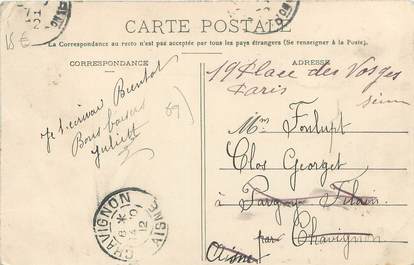 CARTE POSTALE
La Correspondance au recto n'est pas acceptée par tous les pays étrangers (Se renseigner à la Poste).
CORRESPONDANCE
ADRESSE
15 €
Je t'écrirai Bientot
Bons baisers
Juliette
19 Place des Vosges
Paris
Seine
Mme Foulupt
Clos Georget
à Pargny Filain
par Chavignon
Aisne
CHAVIGNON
AISNE
12